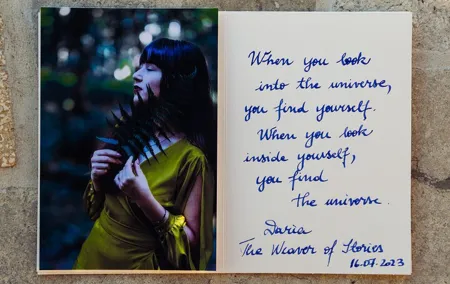 When you look
into the universe,
you find yourself.
When you look
inside yourself,
you find
the universe.
Daria
The Weaver of Stories
16.07.2023